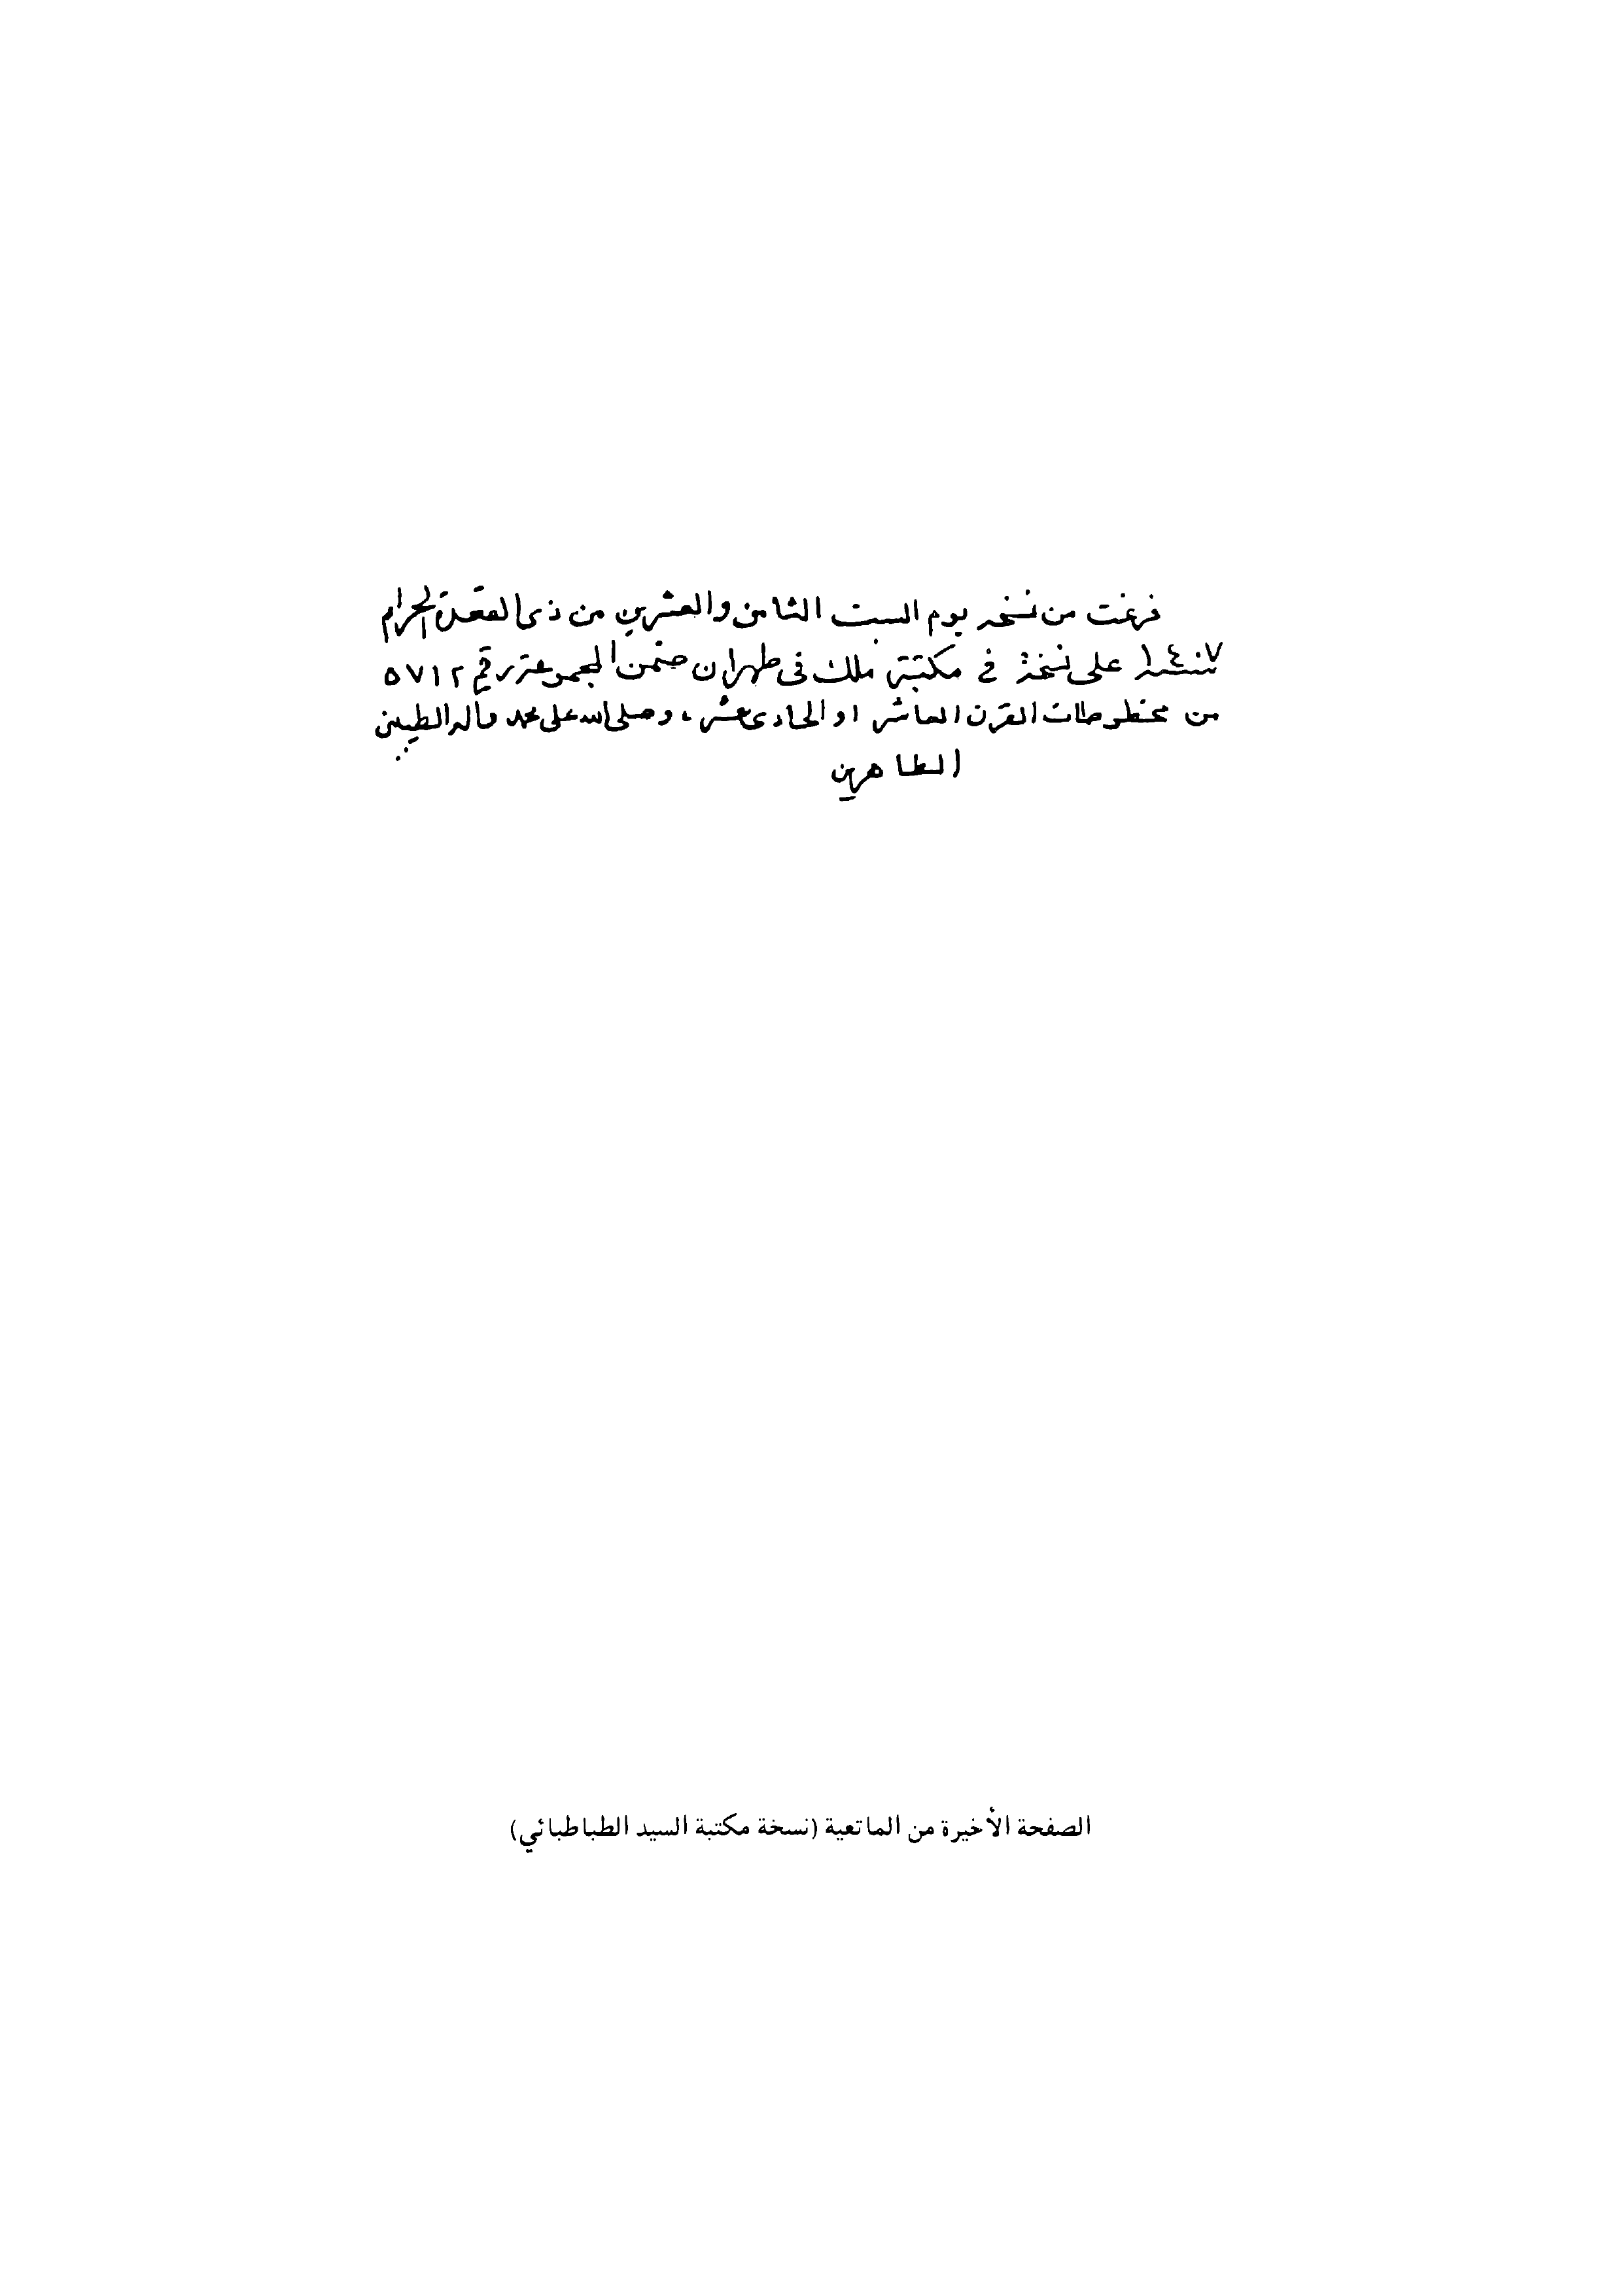 فرغت من نسخه يوم السبت الثامن والعشرين من ذى القعدة الحرام
سنة ١٤٠٧ على نسخة في مكتبة ملك فى طهران ضمن المجموعة رقم ٥٧١٢
من مخطوطات القرن العاشر او الحادى عشر، وصلى الله على محمد وآله الطيبين
الطاهرين
الصفحة الأخيرة من الماتعية (نسخة مكتبة السيد الطباطبائي)